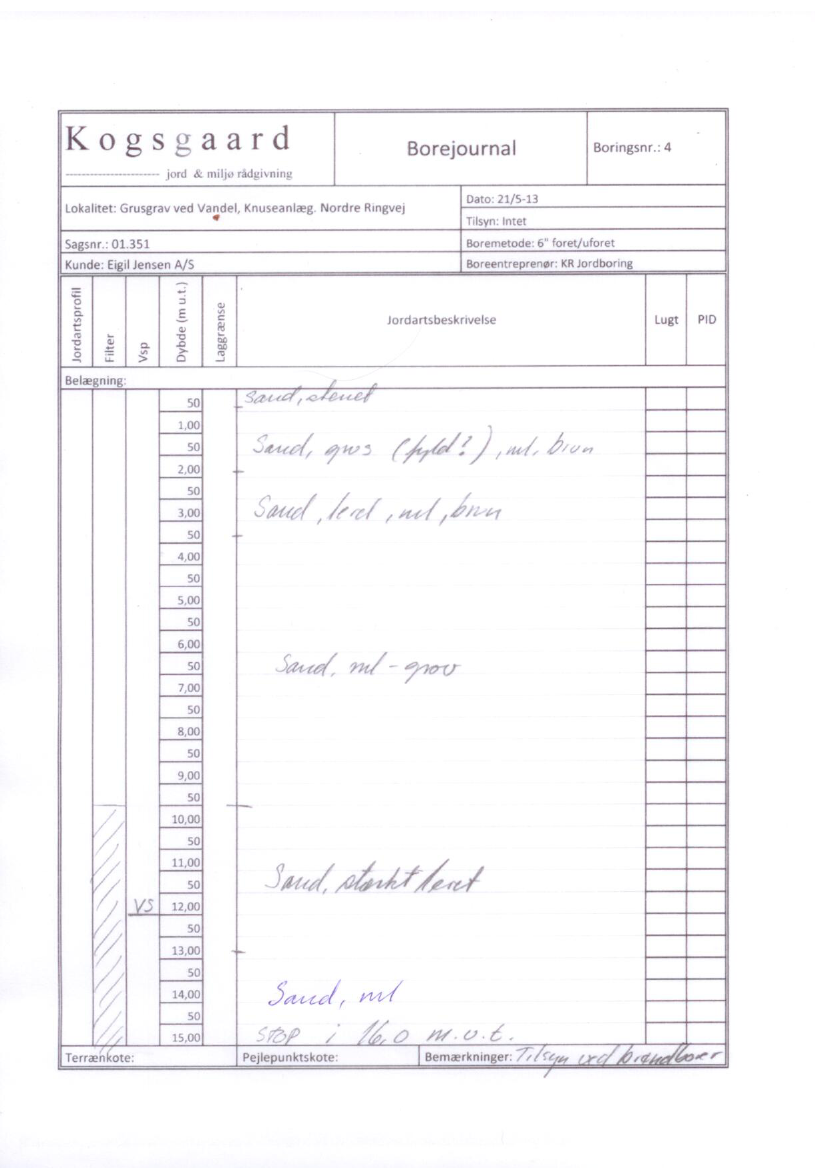 Kogsgaard
jord & miljø rådgivning
Borejournal
Boringsnr.: 4
Lokalitet: Grusgrav ved Vandel, Knuseanlæg. Nordre Ringvej
Dato: 21/5-13
Tilsyn: Intet
Sagsnr.: 01.351
Boremetode: 6" foret/uforet
Kunde: Eigil Jensen A/S
Boreentreprenør: KR Jordboring
Jordartsprofil
Filter
Vsp
Dybde (m u.t.)
Laggrænse
Jordartsbeskrivelse
Lugt
PID
Belægning:
50 Sand, stenet
1,00
50 Sand, grus (fyld?), ml, brun
2,00
50
3,00 Sand, leret, ml, brun
50
4,00
50
5,00
50
6,00
50 Sand, ml - grov
7,00
50
8,00
50
9,00
50
10,00
50
11,00
50 Sand, stærkt leret
VS 12,00
50
13,00
50
14,00 Sand, ml
50
15,00 STOP i 16,0 m.u.t.
Terrænkote:
Pejlepunktskote:
Bemærkninger: Tilsyn ved brøndborer